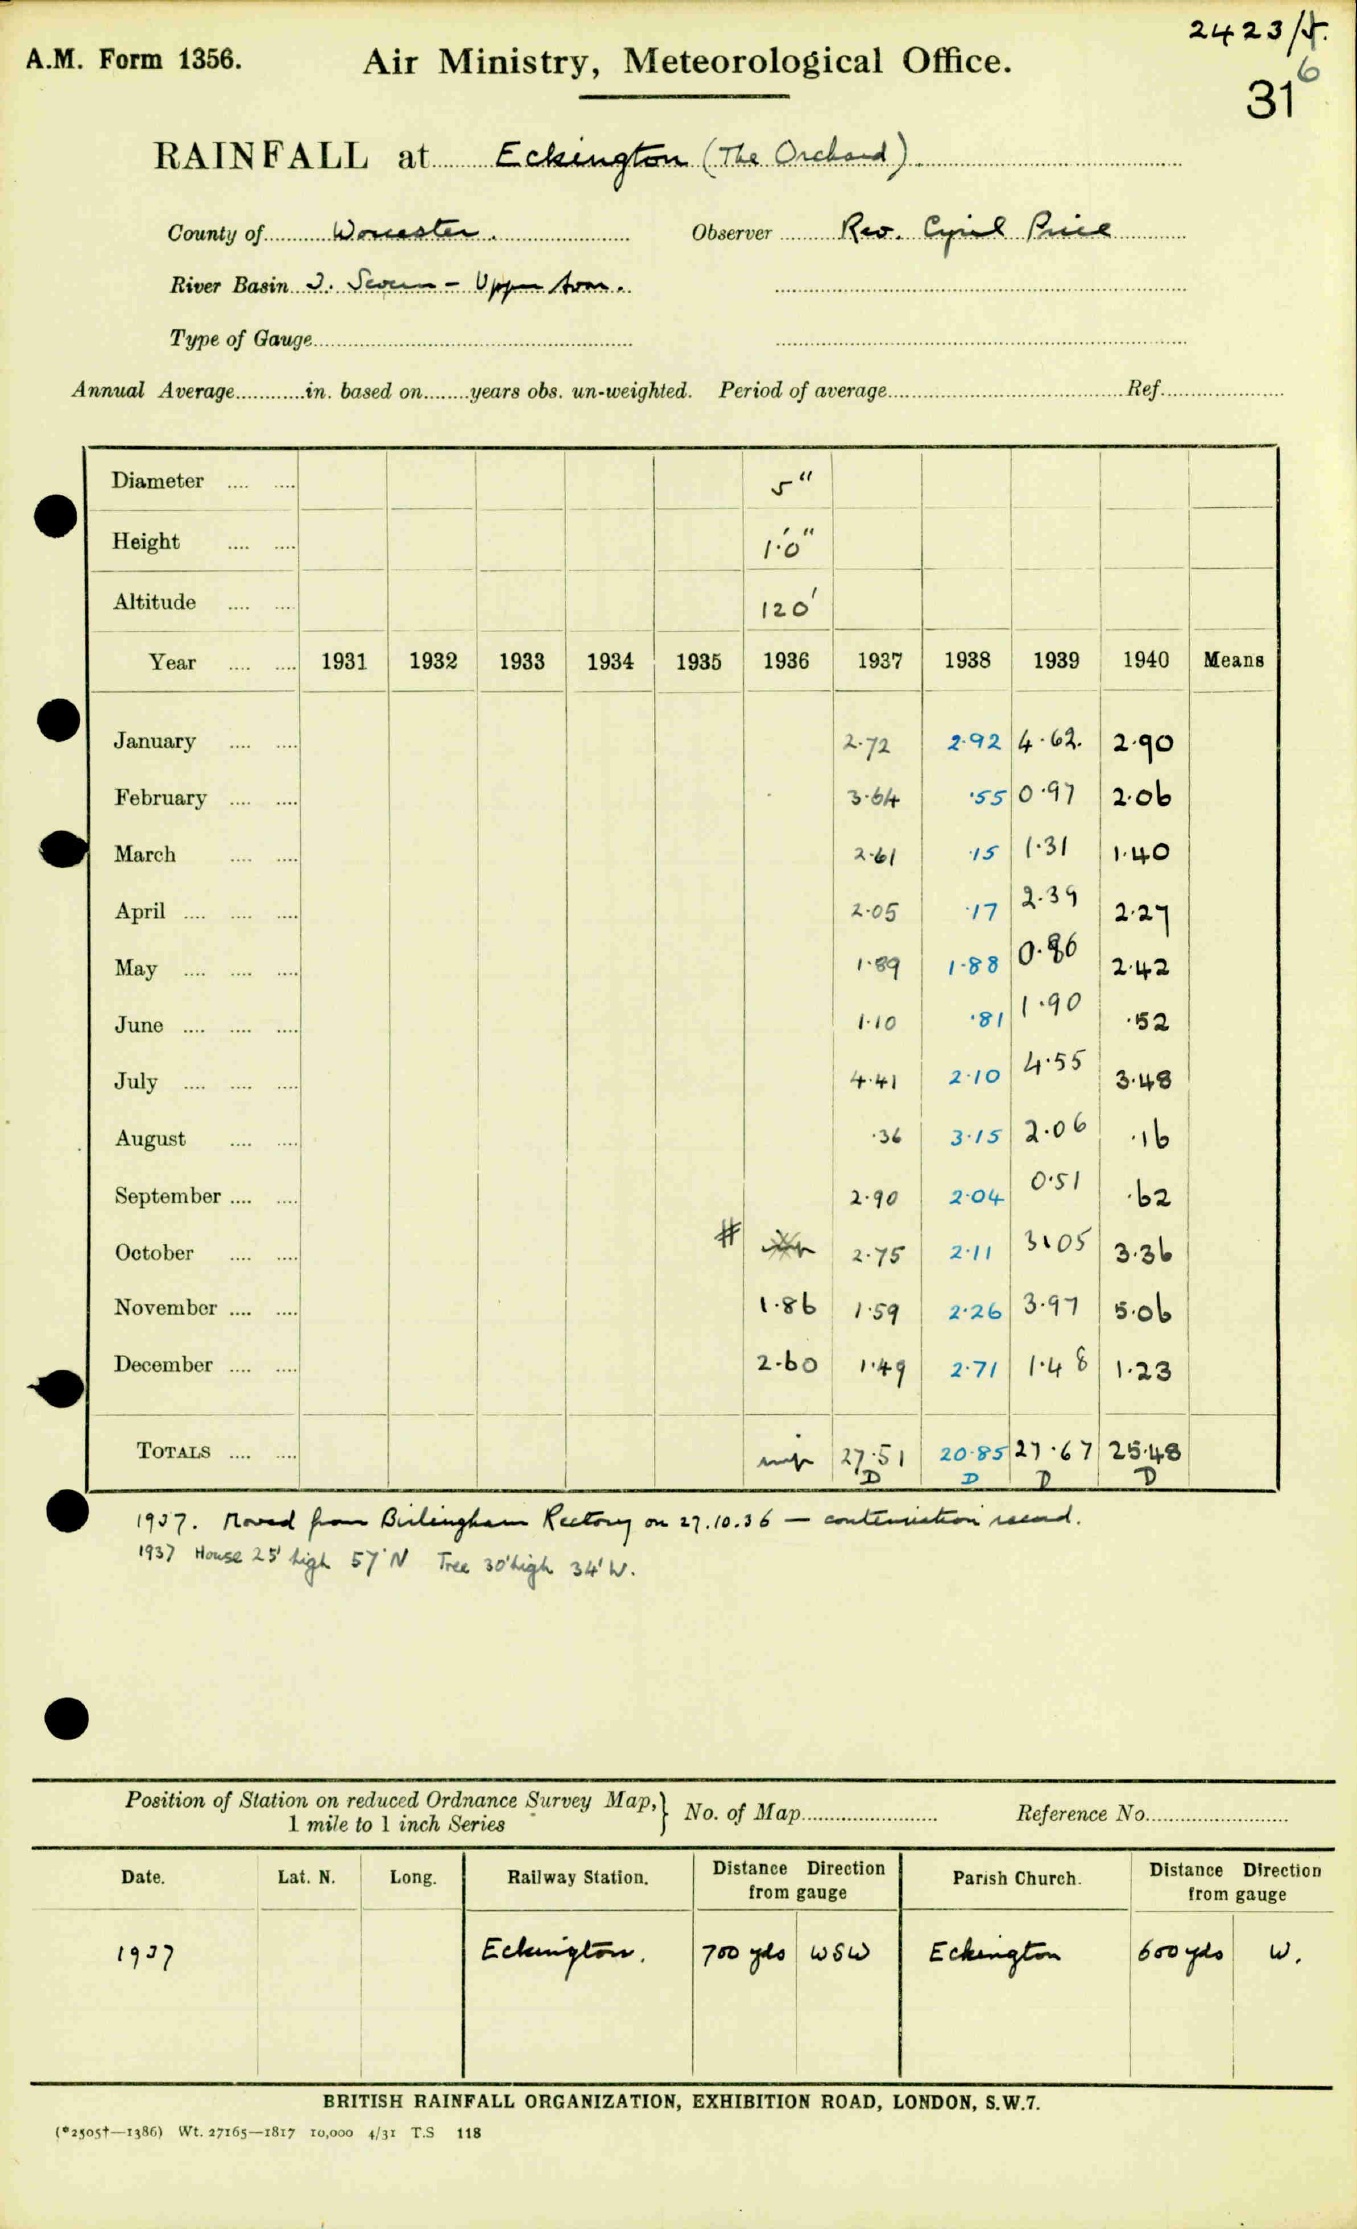 2423/5.
A.M. Form 1356. Air Ministry, Meteorological Office.
316
RAINFALL at Eckington (The Orchard)
County of Worcester. Observer Rev. Cyril Price
River Basin Severn - Upper Avon.
Type of Gauge
Annual Average in. based on years obs. un-weighted. Period of average Ref.
Diameter 5"
Height 1'.0"
Altitude 120'
Year 1931 1932 1933 1934 1935 1936 1937 1938 1939 1940 Means
January 2.72 2.92 4.62. 2.90
February 3.64 .55 0.97 2.06
March 2.61 .15 1.31 1.40
April 2.05 .17 2.39 2.27
May 1.89 1.88 0.86 2.42
June 1.10 .81 1.90 .52
July 4.41 2.10 4.55 3.48
August .36 3.15 2.06 .16
September 2.90 2.04 0.51 .62
October # 2.75 2.11 3.05 3.36
November 1.86 1.59 2.26 3.97 5.06
December 2.60 1.49 2.71 1.48 1.23
TOTALS 27.51 20.85 27.67 25.48
D D D D
1937. Moved from Birlingham Rectory on 27.10.36 — continuation record.
1937 House 25' high 57' N Tree 30' high 34' W.
Position of Station on reduced Ordnance Survey Map, } No. of Map Reference No.
1 mile to 1 inch Series
Date. Lat. N. Long. Railway Station. Distance Direction from gauge Parish Church. Distance Direction from gauge
1937 Eckington. 700 yds WSW Eckington 600 yds W.
BRITISH RAINFALL ORGANIZATION, EXHIBITION ROAD, LONDON, S.W.7.
(*2505†—1386) Wt. 27165—1817 10,000 4/31 T.S 118